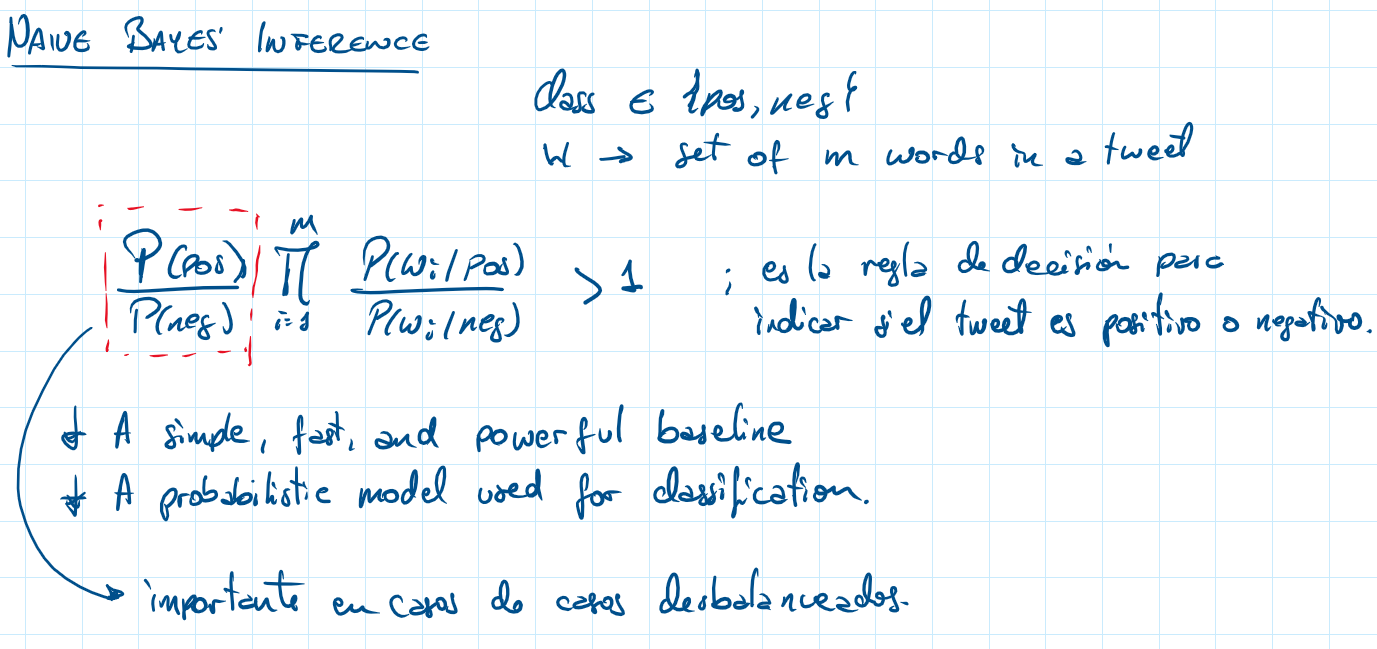 NAIVE BAYES' INFERENCE
Class ∈ {pos, neg}
W → set of m words in a tweet
P(pos)/P(neg) ∏_{i=1}^{m} P(wi/pos)/P(wi/neg) > 1 ; es la regla de decisión para
indicar si el tweet es positivo o negativo.
+ A simple, fast, and powerful baseline
+ A probabilistic model used for classification.
→ importante en casos de casos desbalanceados.